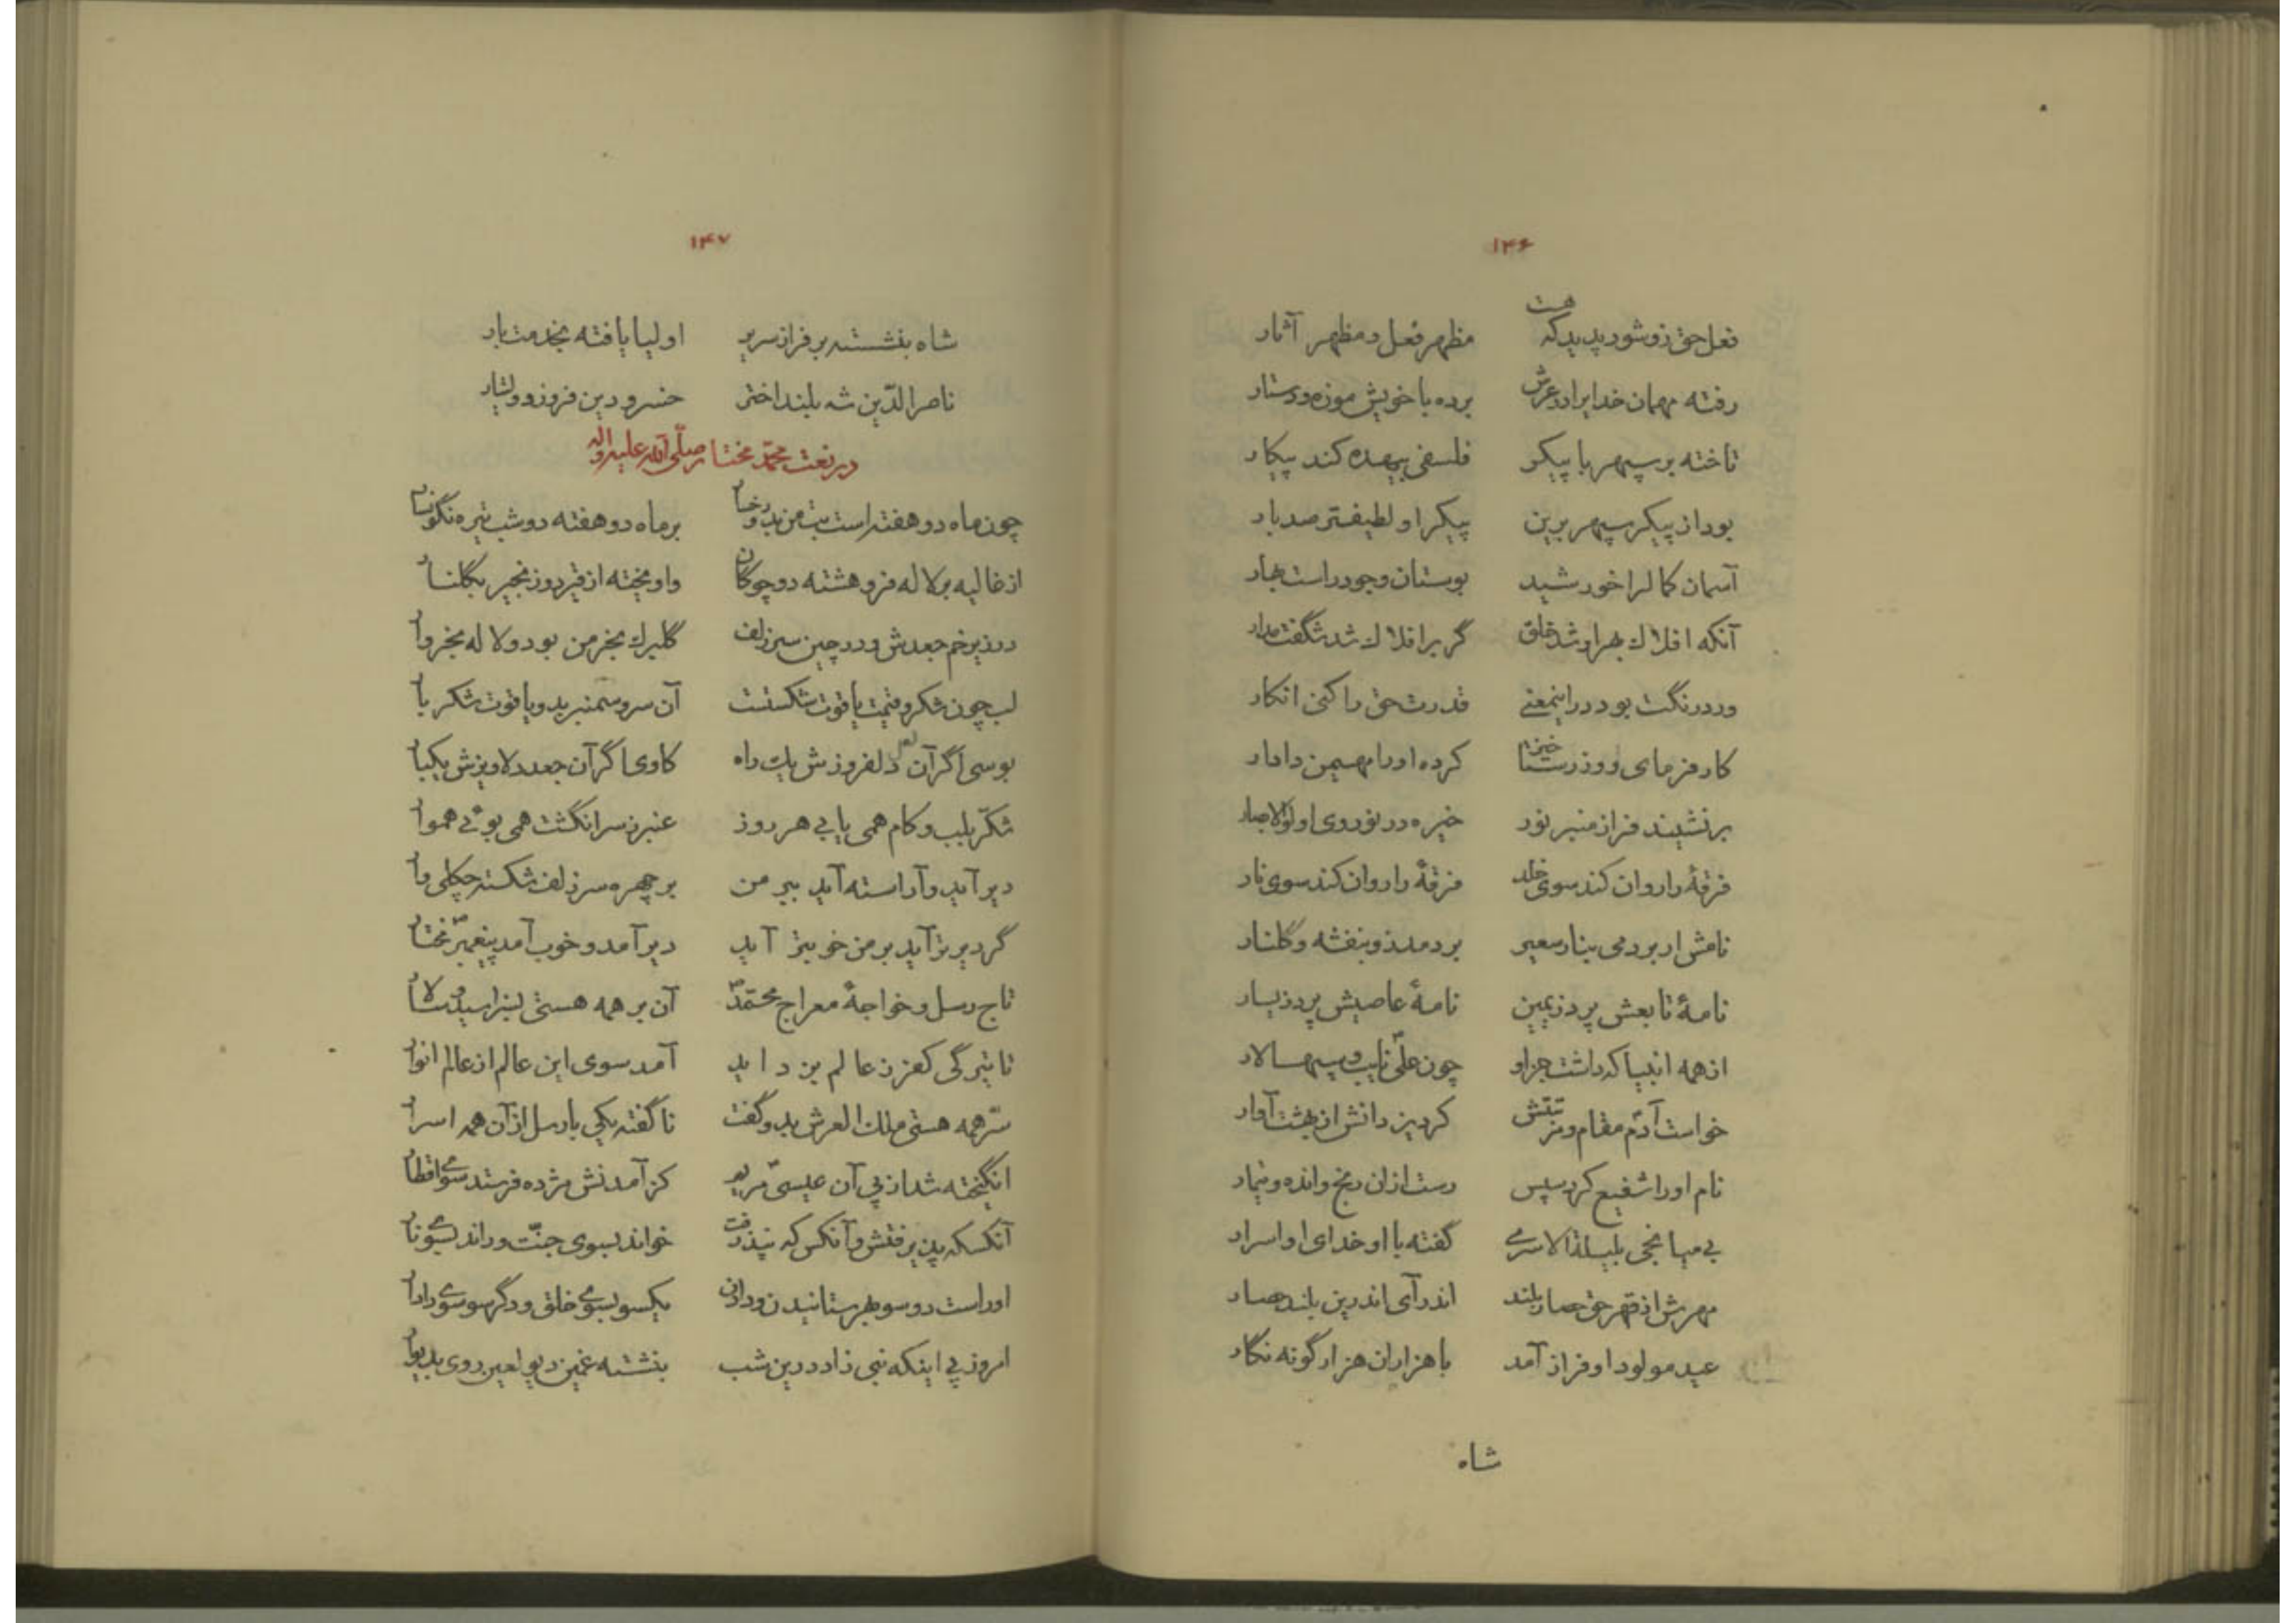 ۱۴۶
فعل حق زو شود پدید که هست مظهر فعل و مظهر آثار
رفته مهمان خدایرا در عرش برده با خویش موزه و دستار
تاخته بر سپهر با پیکر فلسفی بیهده کند پیکار
بود از پیکر سپهر برین پیکر او لطیفتر صد بار
آسمان کمالرا خورشید بوستان وجود راست بهار
آنکه افلاک بهر او شد خلق گر بر افلاک شد شگفت مدار
ور درنگت بود در اینمعنی قدرت حق را کنی انکار
کار فرمای روز رستاخیز کرده او را مهیمن دادار
بر نشیند فراز منبر نور خیره در نور روی او اولوالابصار
فرقهٔ را روان کند سوی خلد فرقهٔ را روان کند سوی نار
نامش ار بردمی بنار سعیر بردمد زو بنفشه و گلنار
نامهٔ تابعش پرد ز یمین نامهٔ عاصیش پرد ز یسار
از همه انبیا که داشت جز او چون علی نایب و سپهسالار
خواست آدم مقام و منزلتش کرد یزدانش از بهشت آوار
نام او را شفیع کرد سپس رست از ان رنج و انده و تیمار
بی میانجی بلیلة الاسری گفته با او خدای او اسرار
مهرش از قهر حق حصار بلند اندر آی اندرین بلند حصار
عید مولود او فراز آمد با هزاران هزار گونه نگار
شاه
۱۴۷
شاه بنشسته بر فراز سریر اولیا یافته بخدمت بار
ناصرالدّین شه بلند اختر خسرو دین فروز دولتیار
در نعت محمّد مختار صلّی الله علیه و اله
چون ماه دو هفته است بت من بدو رخسار بر ماه دو هفته دو شب تیره نگونسار
از غالیه بر لاله فرو هشته دو چوگان واویخته از قیر دو زنجیر بگلنار
در زیر خم جعدش و در چین سر زلف گلبرک بخرمن بود و لاله بخروار
لب چون شکر و قیمت یاقوت شکستست آن سرو سمنبر بدو یاقوت شکر بار
بوسی اگر آن لعل دلفروزش یک راه کاوی اگر آن جعد دلاویزش یکبار
شکّر بلب و کام همی یابی هر روز عنبر ز سر انگشت همی بوئی هموار
دیر آید و آراسته آید ببر من بر چهره سر زلف شکسته چکلی وار
گر دیرتر آید بر من خوبتر آید دیر آمد و خوب آمد پیغمبر مختار
تاج رسل و خواجهٔ معراج محمّد آن بر همه هستی بسزا سید و سالار
تا تیرگی کفر ز عالم بزداید آمد سوی این عالم از عالم انوار
سرّ همه هستی ملک العرش بدو گفت ناگفته یکی با رسل از آن همه اسرار
انگیخته شد از پی آن عیسی مریم کز آمدنش مژده فرستد سوی اقطار
آنکسکه پذیرفتش و آنکس که نپذرفت خواند بسوی جنّت و راند بسوی نار
او راست دو سو بهر ستانیدن و دادن یکسو بسوی خلق و دگر سو سوی دادار
امروز پی اینکه نبی زاد درین شب بنشسته غمین دیو لعین روی بدیوار